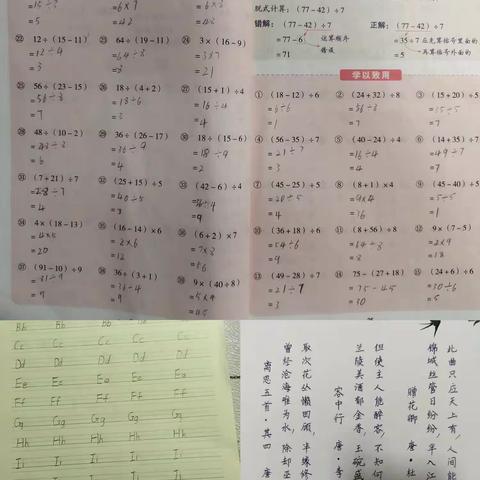 ㉒ 12÷(15-11)
=12÷4
=3
㉕ 56÷(23-15)
=56÷8
=7
㉘ 48÷(10-2)
=48÷8
=6
㉛ (7+21)÷7
=28÷7
=4
㉞ 4×(18-13)
=4×5
=20
(91-10)÷9
=81÷9
=9
㉓ 64÷(19-11)
=64÷8
=8
㉖ 18÷(4+2)
=18÷6
=3
㉙ 36÷(26-17)
=36÷9
=4
㉜ (25+15)÷5
=40÷5
=8
㉟ (16-14)×6
=2×6
=12
36÷(3+1)
=36÷4
=9
㉔ 3×(16-9)
=3×7
=21
㉗ (15+1)÷4
=16÷4
=4
㉚ 18÷(15-6)
=18÷9
=2
㉝ (42-6)÷4
=36÷4
=9
㊱ (6+2)×7
=7×8
=56
9×(40÷8)
=5×9
=45
脱式计算：(77-42)÷7
错解： (77-42)÷7
=77-6
=71
运算顺序
错误
正解： (77-42)÷7
=35÷7 应先算括号里面的
=5 再算括号外面的
学以致用
① (18-12)÷6
=6÷6
=1
② (24+32)÷8
=56÷8
=7
③ (15+20)÷5
=7
④ (56-35)÷7
=21÷7
=3
⑤ (40-24)÷4
=16÷4
=4
⑥ (14+35)÷7
=49÷7
=7
⑦ (45-25)÷5
=20÷5
=4
⑧ (8+1)×4
=9×4
=36
⑨ (45-40)÷5
=5÷5
=1
⑩ (36+18)÷6
=54÷6
=9
⑪ (8+56)÷8
=64÷8
=8
⑫ 9×(7-5)
=2×9
=18
⑬ (49-28)÷7
=21÷7
=3
⑭ 75-(27+18)
=75-45
=30
⑮ (24+6)÷6
=30÷6
=5
Bb Bb Bb Bb
Cc Cc Cc Cc
Dd Dd Dd Dd
Ee Ee Ee Ee
Ff Ff Ff Ff
Gg Gg Gg Gg
Hh Hh Hh Hh
Ii Ii Ii Ii
此曲只应天上有，人间能
锦城丝管日纷纷，半入江
赠花卿 唐·杜
但使主人能醉客，不知何
兰陵美酒郁金香，玉碗盛
客中行 唐·李
取次花丛懒回顾，半缘修
曾经沧海难为水，除却巫
离思五首·其四 唐